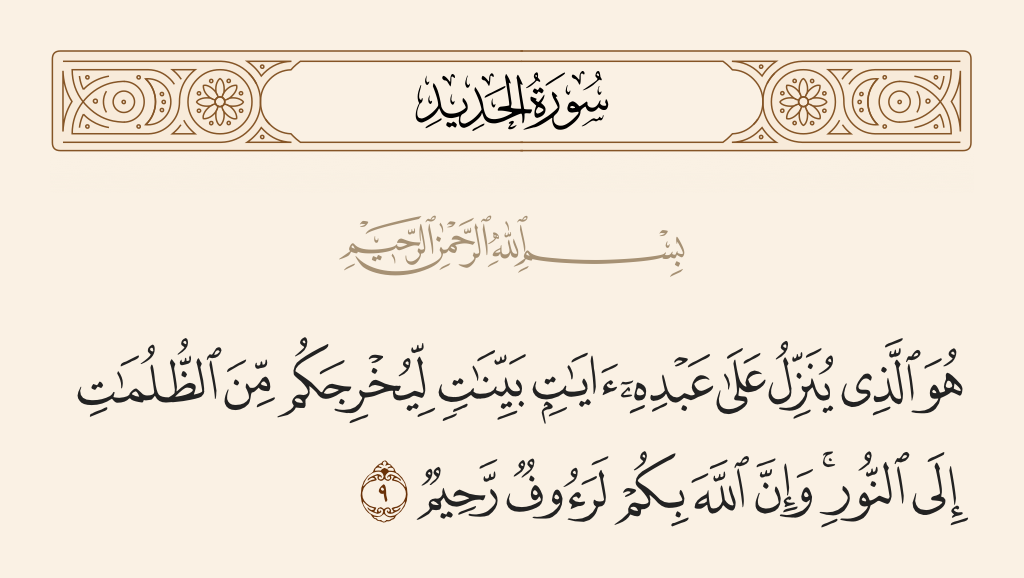 سُورَةُ الحَدِيدِ
بِسْمِ ٱللَّهِ ٱلرَّحْمَٰنِ ٱلرَّحِيمِ
هُوَ ٱلَّذِى يُنَزِّلُ عَلَىٰ عَبْدِهِۦٓ ءَايَـٰتٍۭ بَيِّنَـٰتٍ لِّيُخْرِجَكُم مِّنَ ٱلظُّلُمَـٰتِ
إِلَى ٱلنُّورِ ۚ وَإِنَّ ٱللَّهَ بِكُمْ لَرَءُوفٌ رَّحِيمٌ ٩